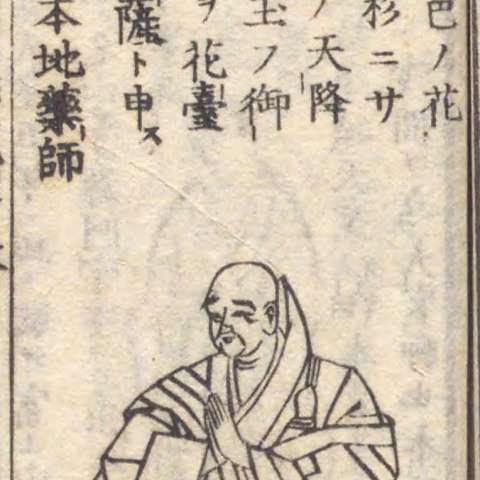 色ノ花
杉ニサ
ノ天降
玉フ御
ヲ花臺
薩ト申ス
本地藥師